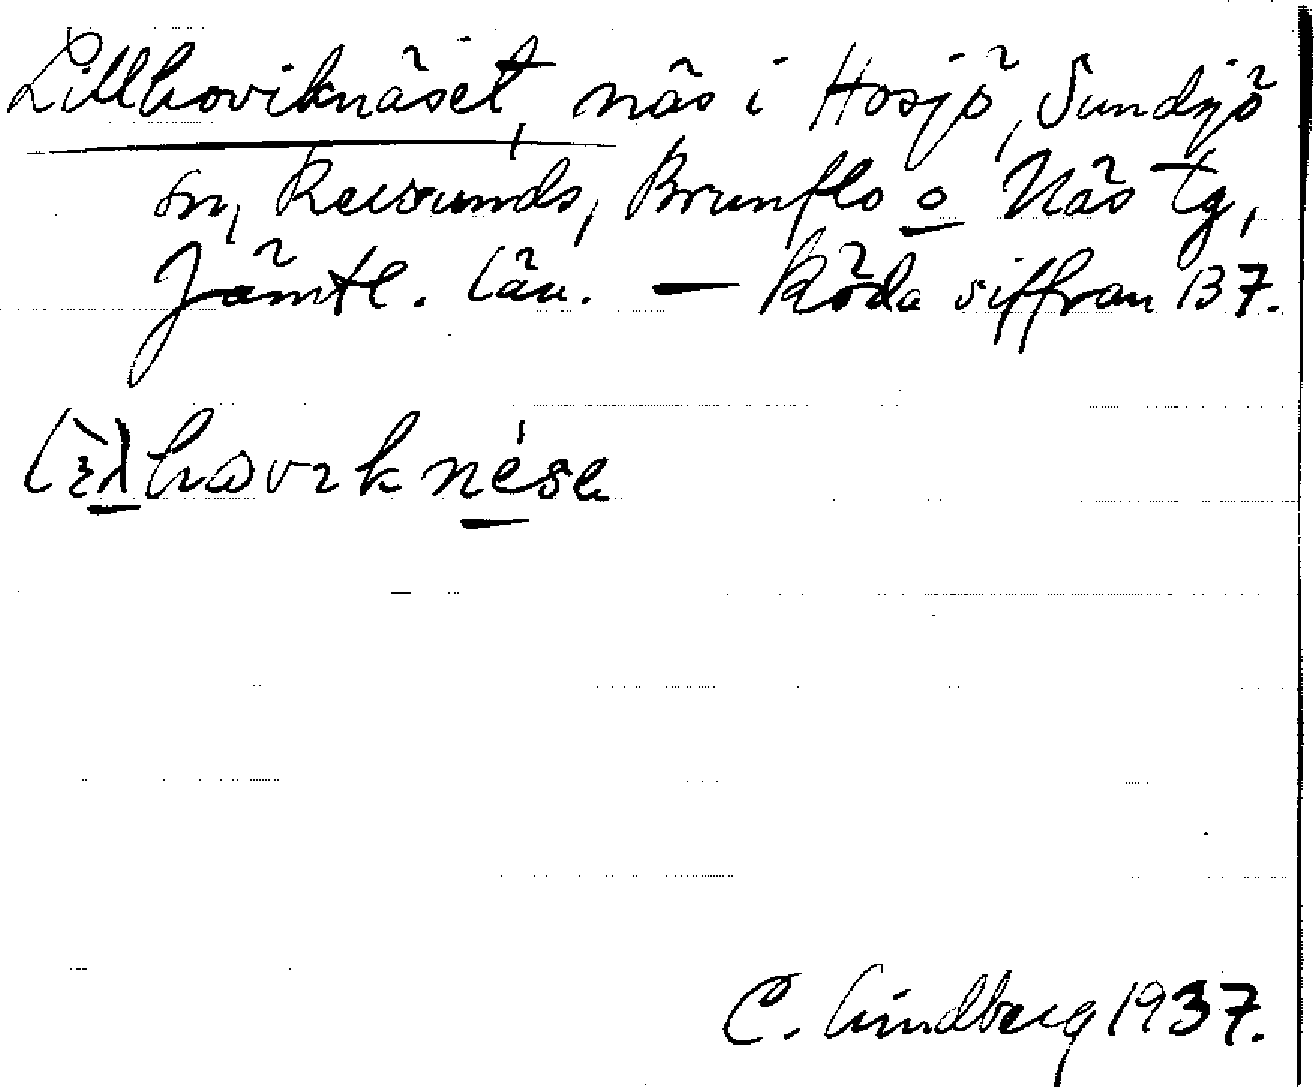 Lillhoviknäset, näs i Hosjö, Sundsjö
sn, Revsunds, Brunflo o Näs tg,
Jämtl. län. — Röda siffran 137.
C. Lindberg 1937.